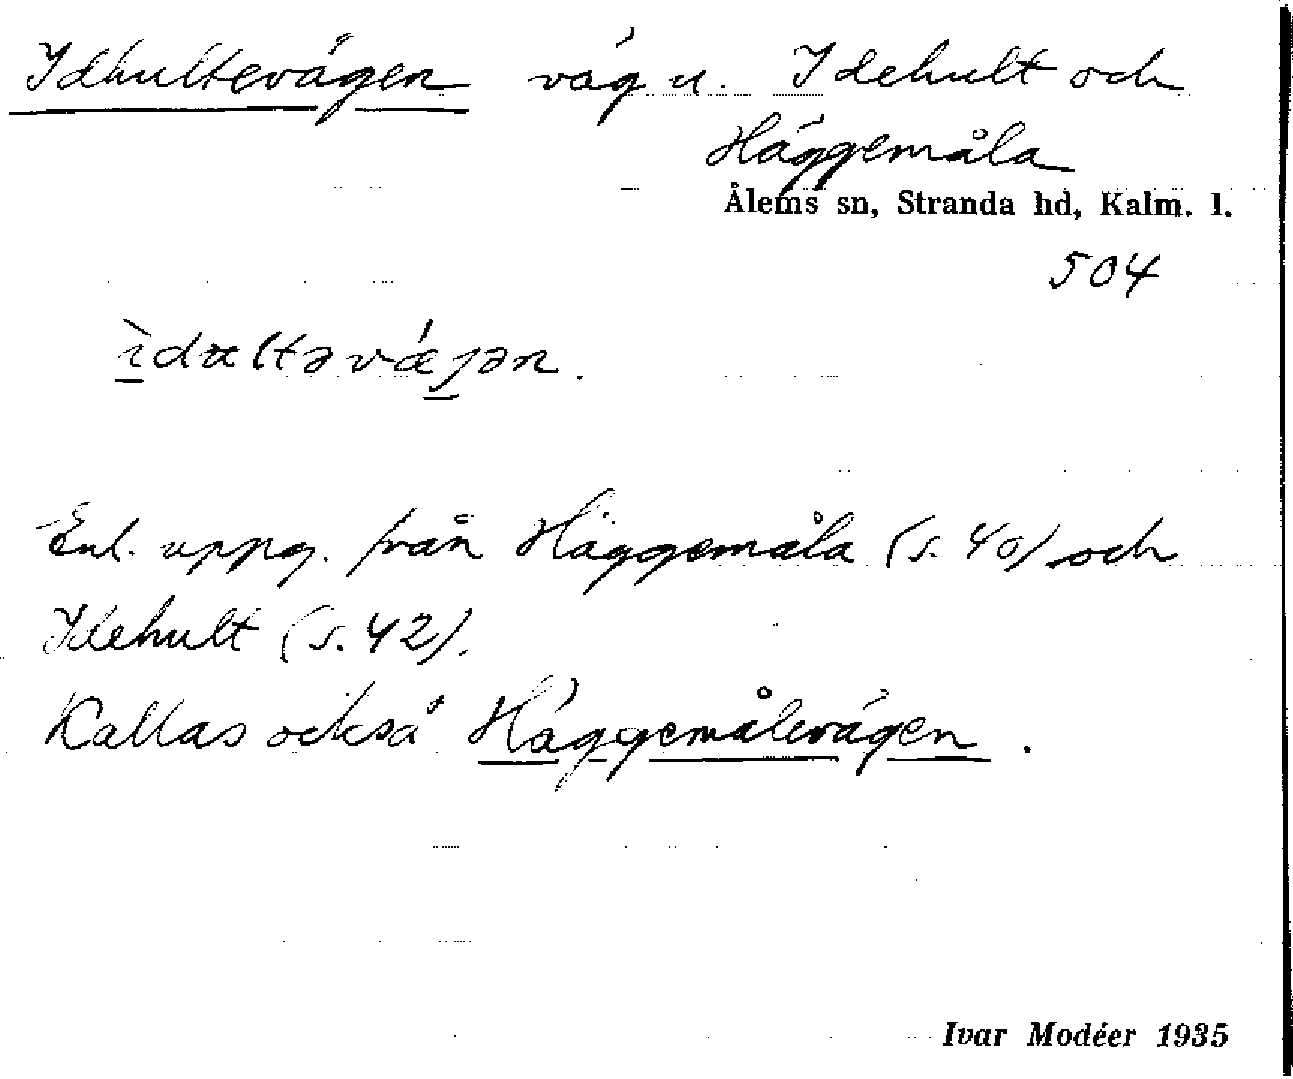 Idhultevägen väg u. Idehult och
Häggemåla
Ålems sn, Stranda hd, Kalm. l.
504
ìdæltəvǽjən.
Enl. uppg. från Häggemåla (s. 40) och
Idehult (s. 42).
Kallas också Häggemålevägen.
Ivar Modéer 1935